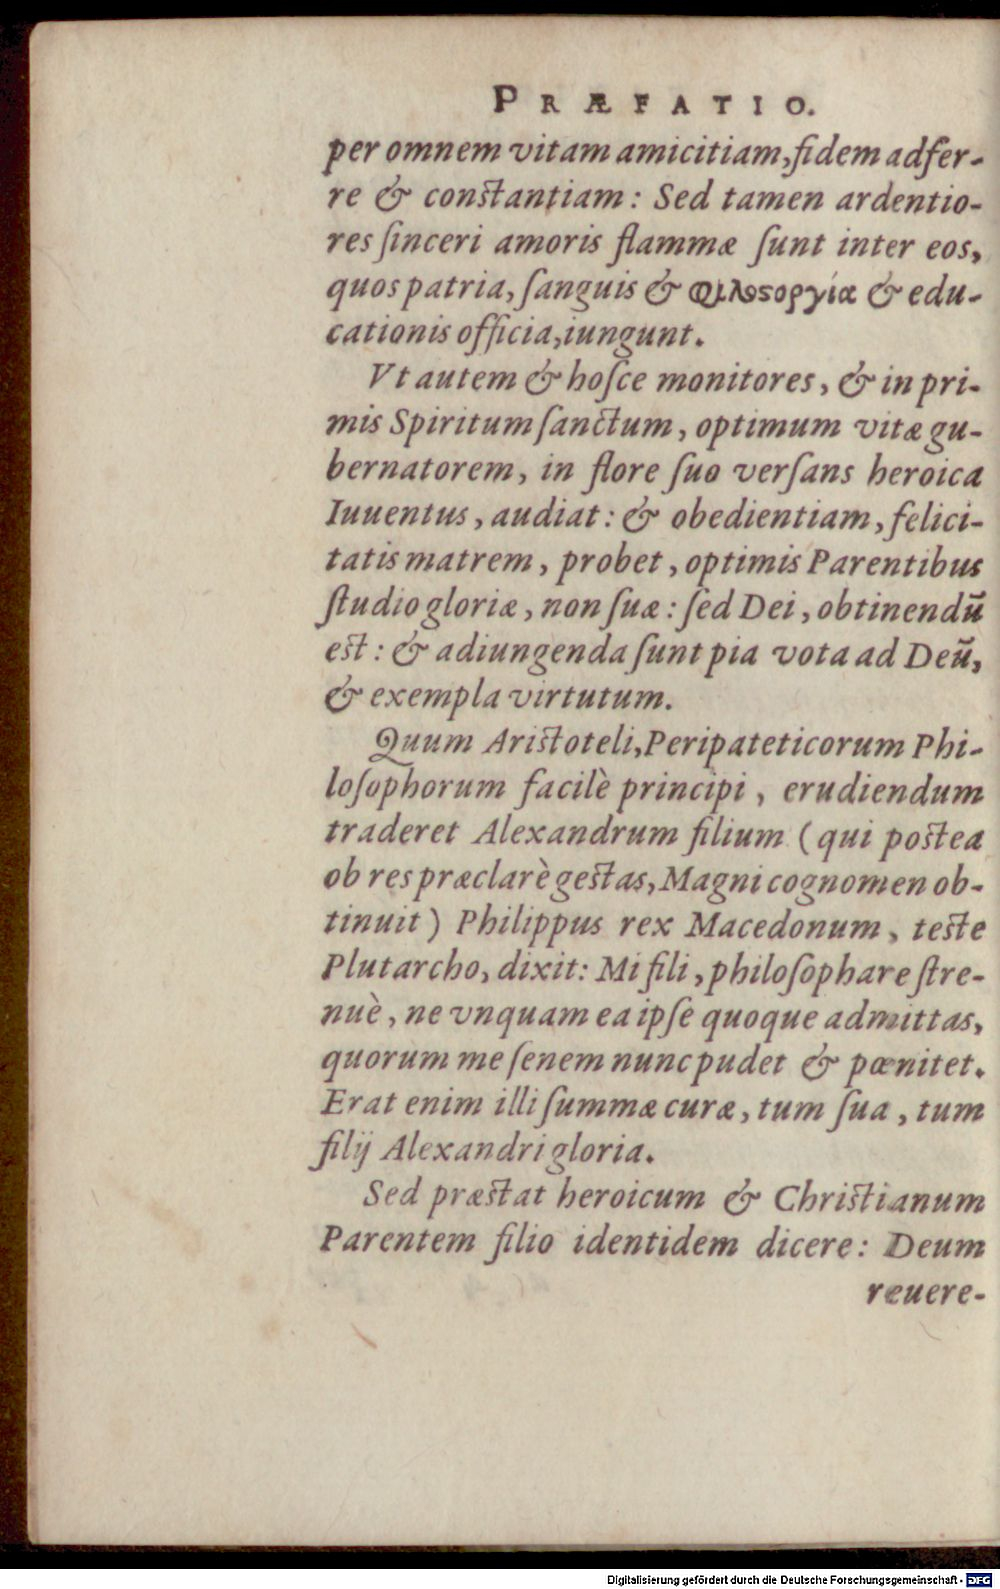 PRÆFATIO.
per omnem vitam amicitiam, fidem adfer-
re & constantiam: Sed tamen ardentio-
res ſinceri amoris flammæ ſunt inter eos,
quos patria, ſanguis & φιλοσοργία & edu-
cationis officia, iungunt.
Vt autem & hoſce monitores, & in pri-
mis Spiritum ſanctum, optimum vitæ gu-
bernatorem, in flore ſuo verſans heroica
Iuuentus, audiat: & obedientiam, felici-
tatis matrem, probet, optimis Parentibus
ſtudio gloriæ, non ſuæ: ſed Dei, obtinendũ
est: & adiungenda ſunt pia vota ad Deũ,
& exempla virtutum.
Quum Aristoteli, Peripateticorum Phi-
loſophorum facilè principi, erudiendum
traderet Alexandrum filium (qui postea
ob res præclarè gestas, Magni cognomen ob-
tinuit) Philippus rex Macedonum, teste
Plutarcho, dixit: Mi fili, philoſophare ſtre-
nuè, ne vnquam ea ipſe quoque admittas,
quorum me ſenem nunc pudet & pœnitet.
Erat enim illi ſummæ curæ, tum ſua, tum
filij Alexandri gloria.
Sed præstat heroicum & Christianum
Parentem filio identidem dicere: Deum
reuere-
Digitalisierung gefördert durch die Deutsche Forschungsgemeinschaft - DFG